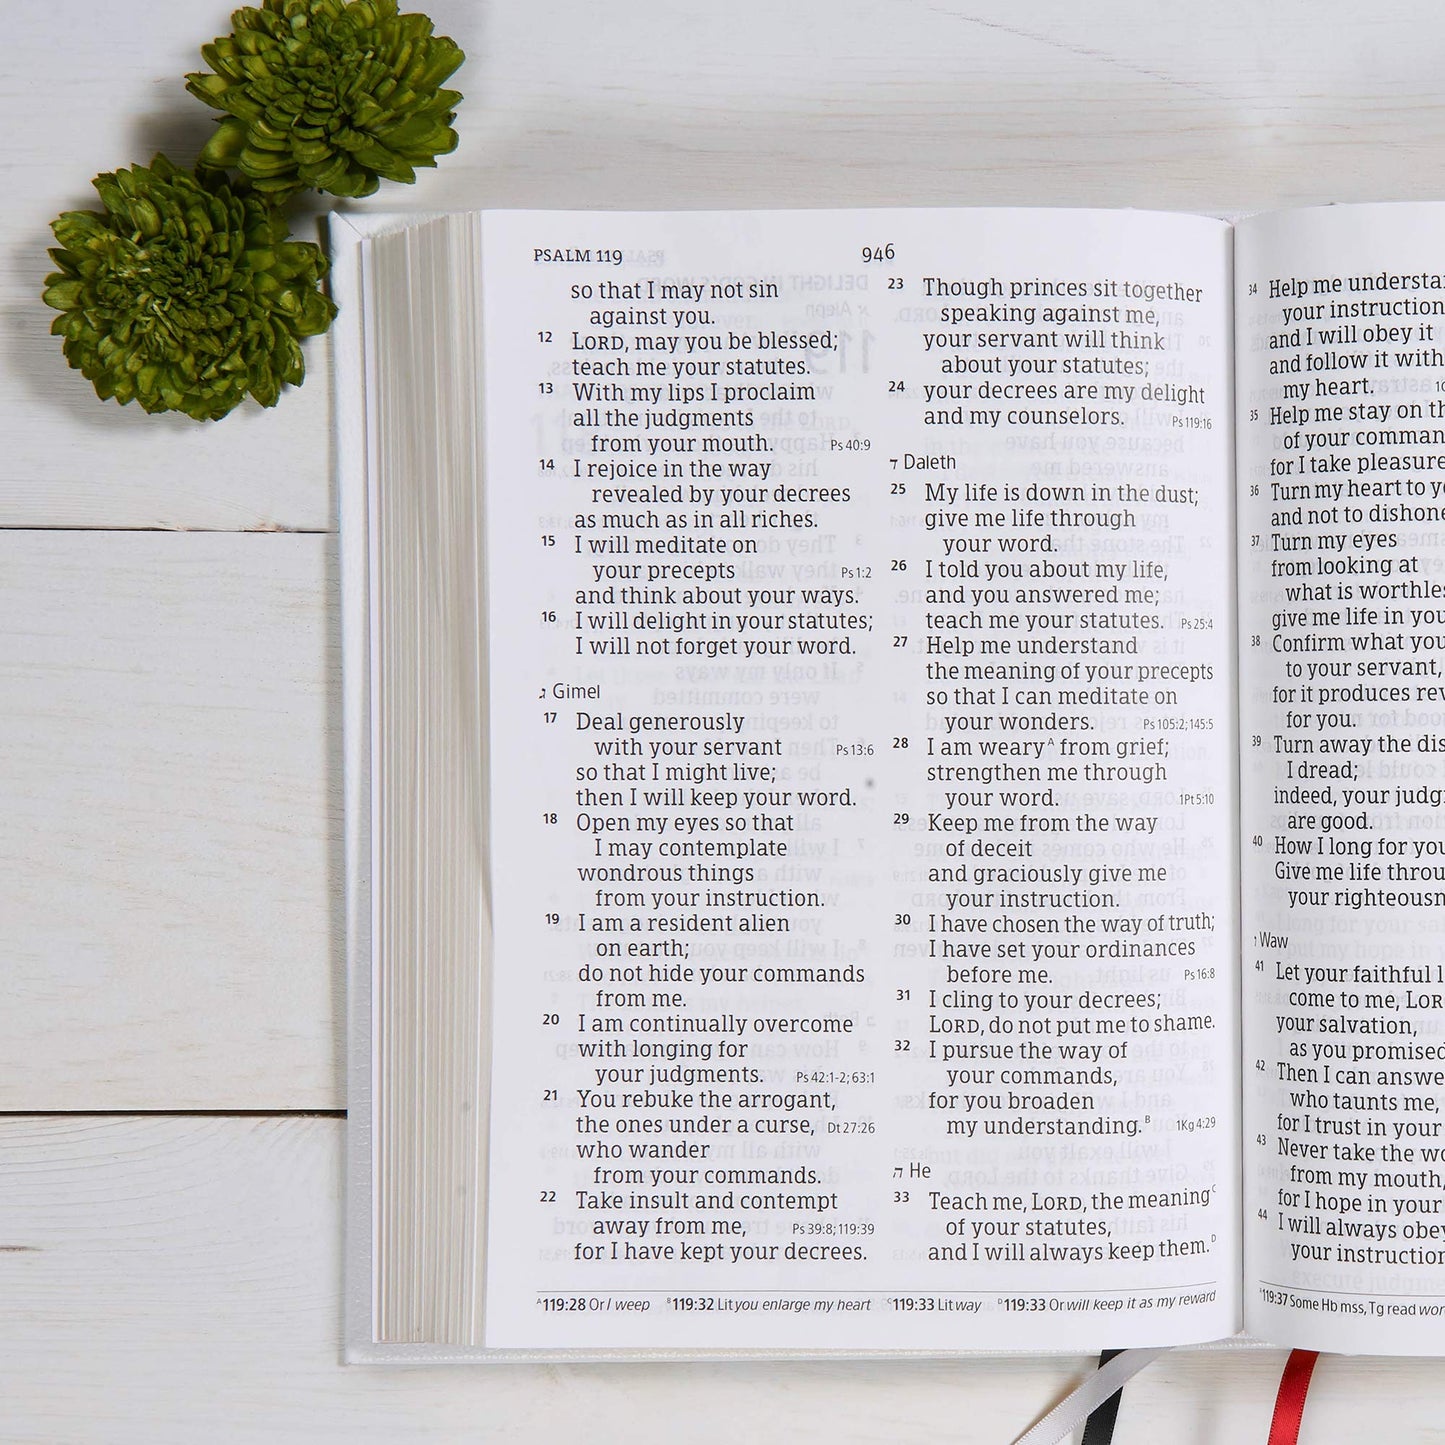 PSALM 119
946
so that I may not sin
against you.
12 LORD, may you be blessed;
teach me your statutes.
13 With my lips I proclaim
all the judgments
from your mouth. Ps 40:9
14 I rejoice in the way
revealed by your decrees
as much as in all riches.
15 I will meditate on
your precepts Ps 1:2
and think about your ways.
16 I will delight in your statutes;
I will not forget your word.
ג Gimel
17 Deal generously
with your servant Ps 13:6
so that I might live;
then I will keep your word.
18 Open my eyes so that
I may contemplate
wondrous things
from your instruction.
19 I am a resident alien
on earth;
do not hide your commands
from me.
20 I am continually overcome
with longing for
your judgments. Ps 42:1-2; 63:1
21 You rebuke the arrogant,
the ones under a curse, Dt 27:26
who wander
from your commands.
22 Take insult and contempt
away from me, Ps 39:8; 119:39
for I have kept your decrees.
23 Though princes sit together
speaking against me,
your servant will think
about your statutes;
24 your decrees are my delight
and my counselors. Ps 119:16
ד Daleth
25 My life is down in the dust;
give me life through
your word.
26 I told you about my life,
and you answered me;
teach me your statutes. Ps 25:4
27 Help me understand
the meaning of your precepts
so that I can meditate on
your wonders. Ps 105:2; 145:5
28 I am weary A from grief;
strengthen me through
your word. 1Pt 5:10
29 Keep me from the way
of deceit
and graciously give me
your instruction.
30 I have chosen the way of truth;
I have set your ordinances
before me. Ps 16:8
31 I cling to your decrees;
LORD, do not put me to shame.
32 I pursue the way of
your commands,
for you broaden
my understanding. B 1Kg 4:29
ה He
33 Teach me, LORD, the meaning C
of your statutes,
and I will always keep them. D
A 119:28 Or I weep B 119:32 Lit you enlarge my heart C 119:33 Lit way D 119:33 Or will keep it as my reward
34 Help me understa
your instruction
and I will obey it
and follow it with
my heart.
35 Help me stay on th
of your comman
for I take pleasure
36 Turn my heart to yo
and not to dishone
37 Turn my eyes
from looking at
what is worthles
give me life in you
38 Confirm what you
to your servant,
for it produces rev
for you.
39 Turn away the dis
I dread;
indeed, your judg
are good.
40 How I long for you
Give me life throu
your righteousn
ו Waw
41 Let your faithful l
come to me, LOR
your salvation,
as you promised
42 Then I can answe
who taunts me,
for I trust in your
43 Never take the wo
from my mouth,
for I hope in your
44 I will always obey
your instruction
119:37 Some Hb mss, Tg read wor